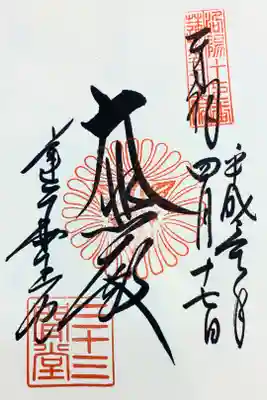 平成
洛陽十七番
奉拝 四月十七日
大悲殿
蓮華王院
三十三間堂